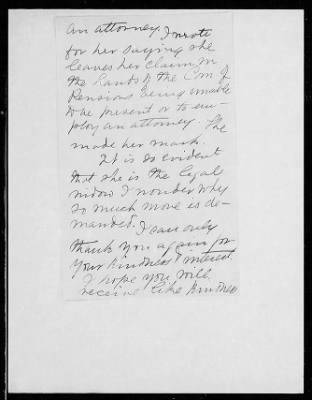 an attorney. I wrote
for her saying she
leaves her claim in
the hands of the Com of
Pensions being unable
to be present or to em-
ploy an attorney. She
made her mark.
It is so evident
that she is the legal
widow I wonder why
so much more is de-
manded. I can only
thank you again for
your kindness & interest.
I hope you will
receive like kindness